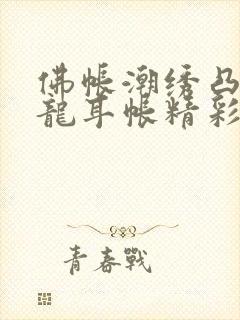 佛帐潮绣凸
龍耳帐精彩
青春戰